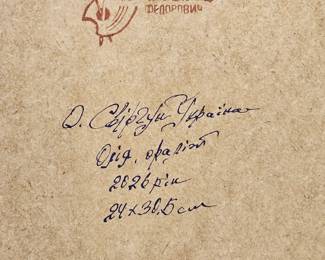 ФЕДОРОВИЧ
О. Свіргун Україна
Орід. оргаліт
2026 рік
24×30.5 см